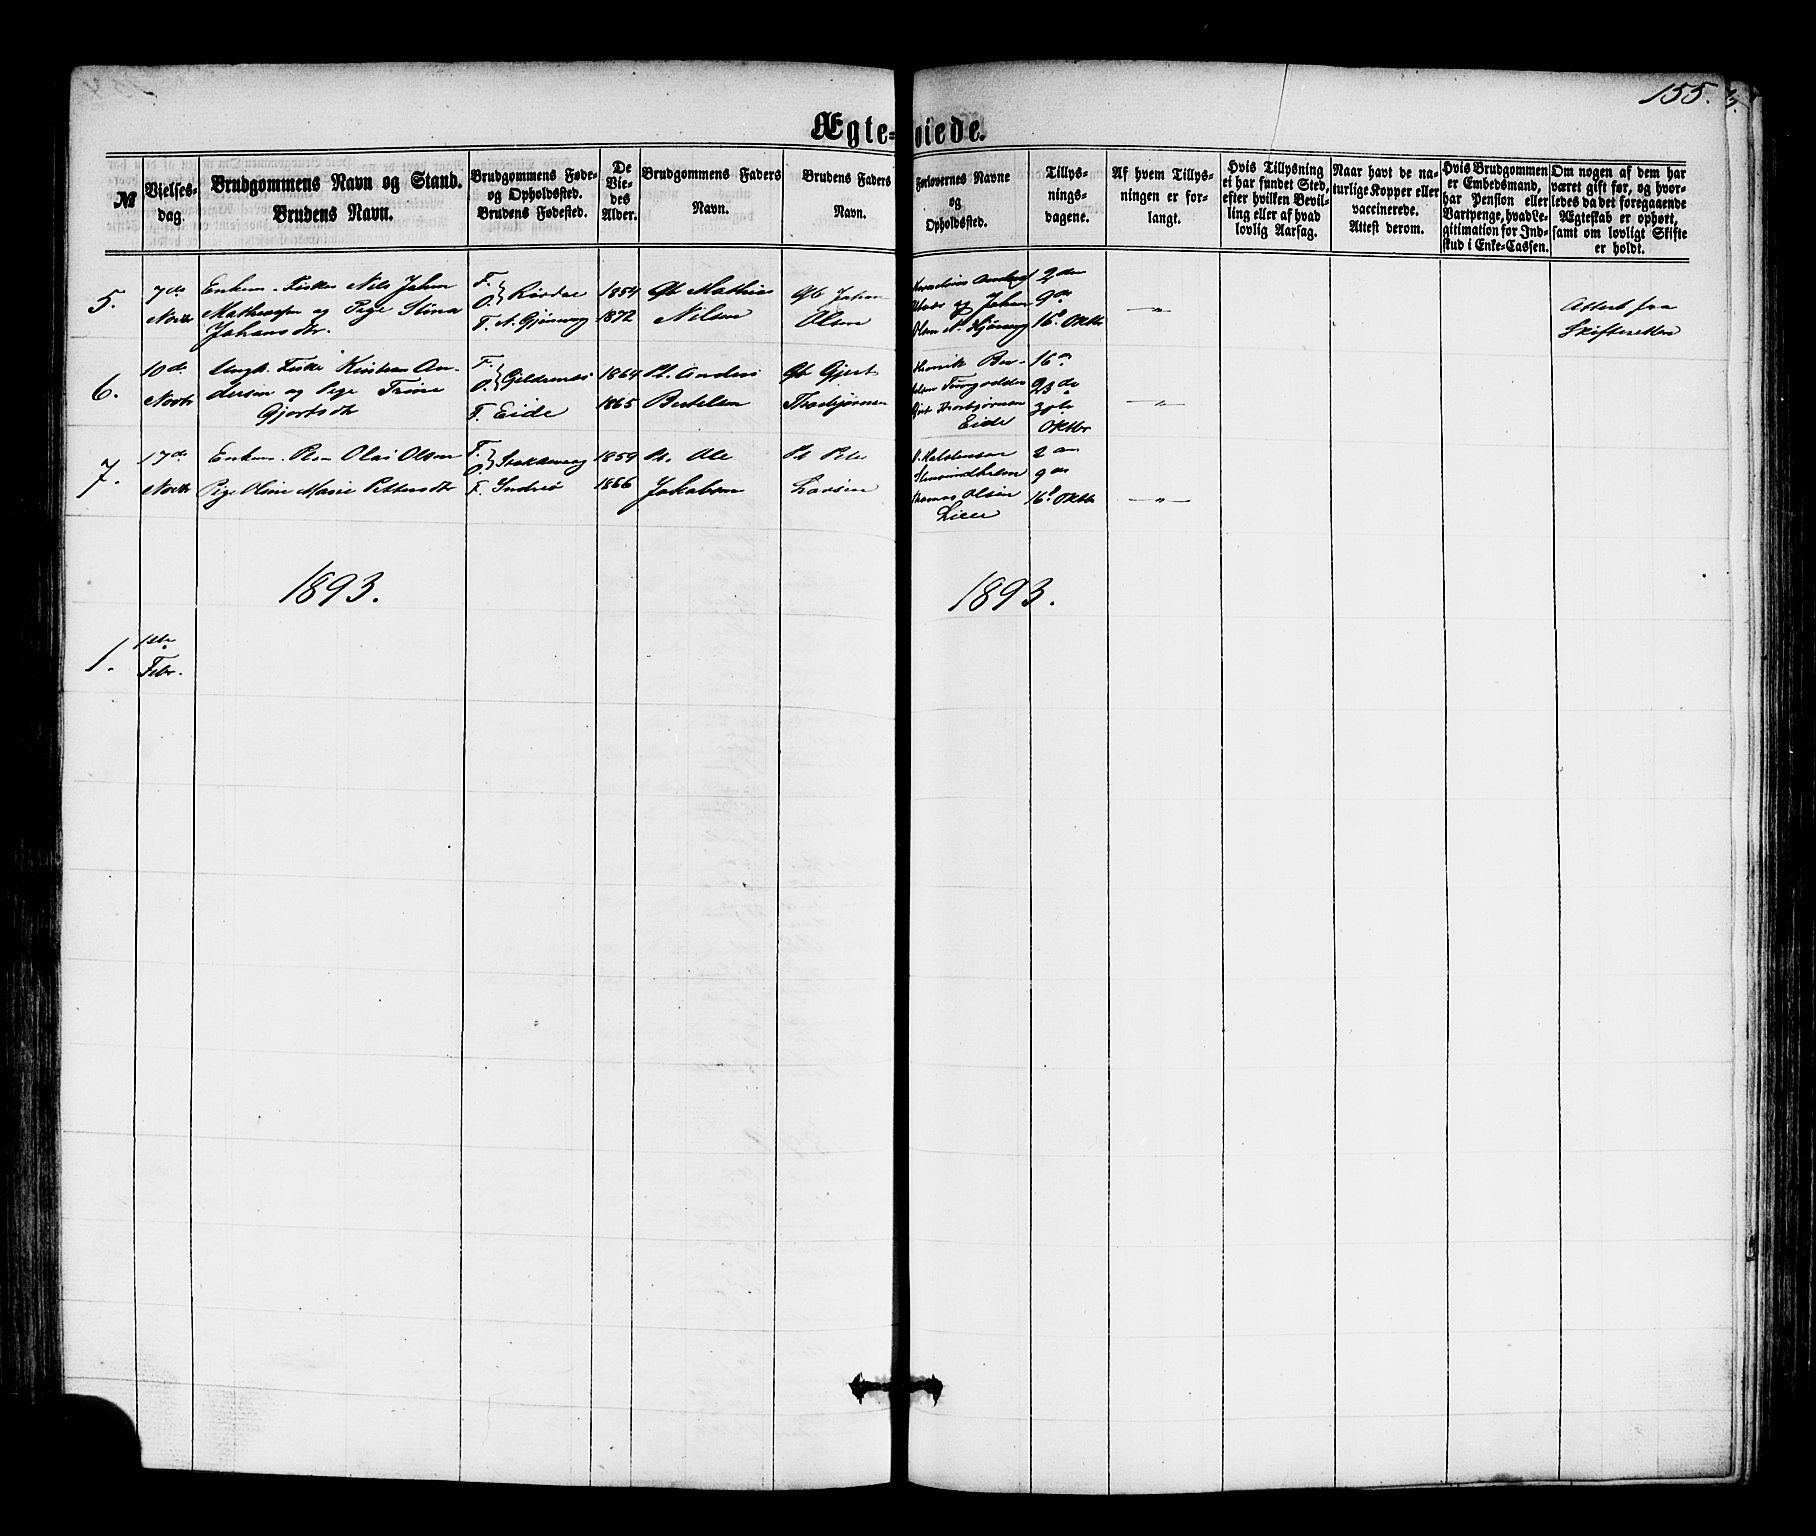 155.
Ægte-viede.
№
Vielses-
dag.
Brudgommens Navn og Stand.
Brudens Navn.
Brudgommens Føde-
og Opholdssted.
Brudens Fødested.
De
Vie-
des
Alder.
Brudgommens Faders
Navn.
Brudens Faders
Navn.
Forlovernes Navne
og
Opholdssted.
Tillys-
nings-
dagene.
Af hvem Tillys-
ningen er for-
langt.
Hvis Tillysning
ei har fundet Sted,
efter hvilken Bevil-
ling eller af hvad
lovlig Aarsag.
Naar havt de na-
turlige Kopper eller
vaccinerede.
Attest derom.
Hvis Brudgommen
er Embedsmand,
har Pension eller
Vartpenge, hvad Le-
gitimation for Ind-
skud i Enke-Cassen.
Om nogen af dem har
været gift før, og hvor-
ledes da det foregaaende
Ægteskab er ophørt,
samt om lovligt Skifte
er holdt.
5.
7de
Novbr
Enkem. Fisker Nils Johan
og Pige Stina
Johansdtr.
F.
O.
F. N.
1854
1872
Gb Mathias
Nilsen
Gb Johan
Olsen
og Johan
Olsen N.
2den
9de
16d Oktbr
— " —
Attest fra
Skifteretten
6.
10de
Novbr
Ungk. Fisker Kristian An-
dersen og Pige Trine
Gjertsdtr
F.
O. Gjeldsnæs
F. Eide
1864
1865
Pl. Anders
Bertelsen
Gb Gjert
Thorbjørnsen
Henrik Ber-
Gjert Thorbjørnsen
Eide
16de
23de
30te
Oktbr
— " —
7.
17de
Novbr
Enkem. Olai Olsen
Pige Oline Marie Pettersdtr
F.
O.
F. Inderø
1859
1866
Pl. Ole
Jakobsen
Pl Peter
Larsen
Thomas Olsen
Lien
2den
9de
16d Oktbr
— " —
1893.
1893.
1.
1ste
Febr.